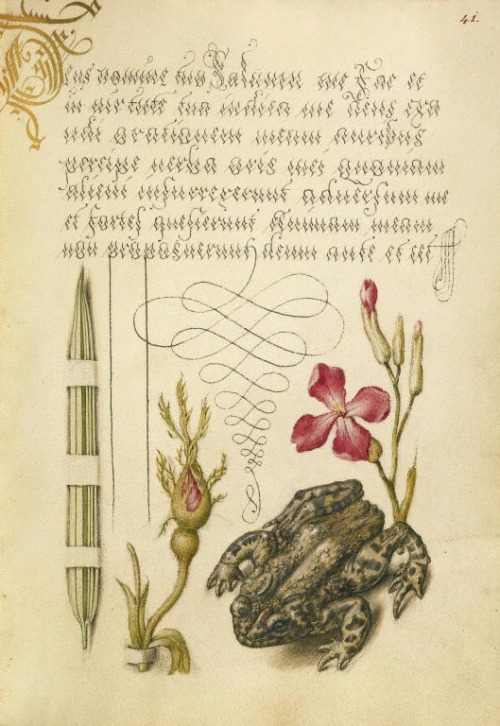 41.
Deus nomine tuo Saluum me Fac et
in uirtute tua iudica me Deus exa
udi orationem meam auribus
percipe uerba oris mei quoniam
alieni insurrexerunt aduersum me
et fortes quesierunt animam meam
non proposuerunt deum ante et